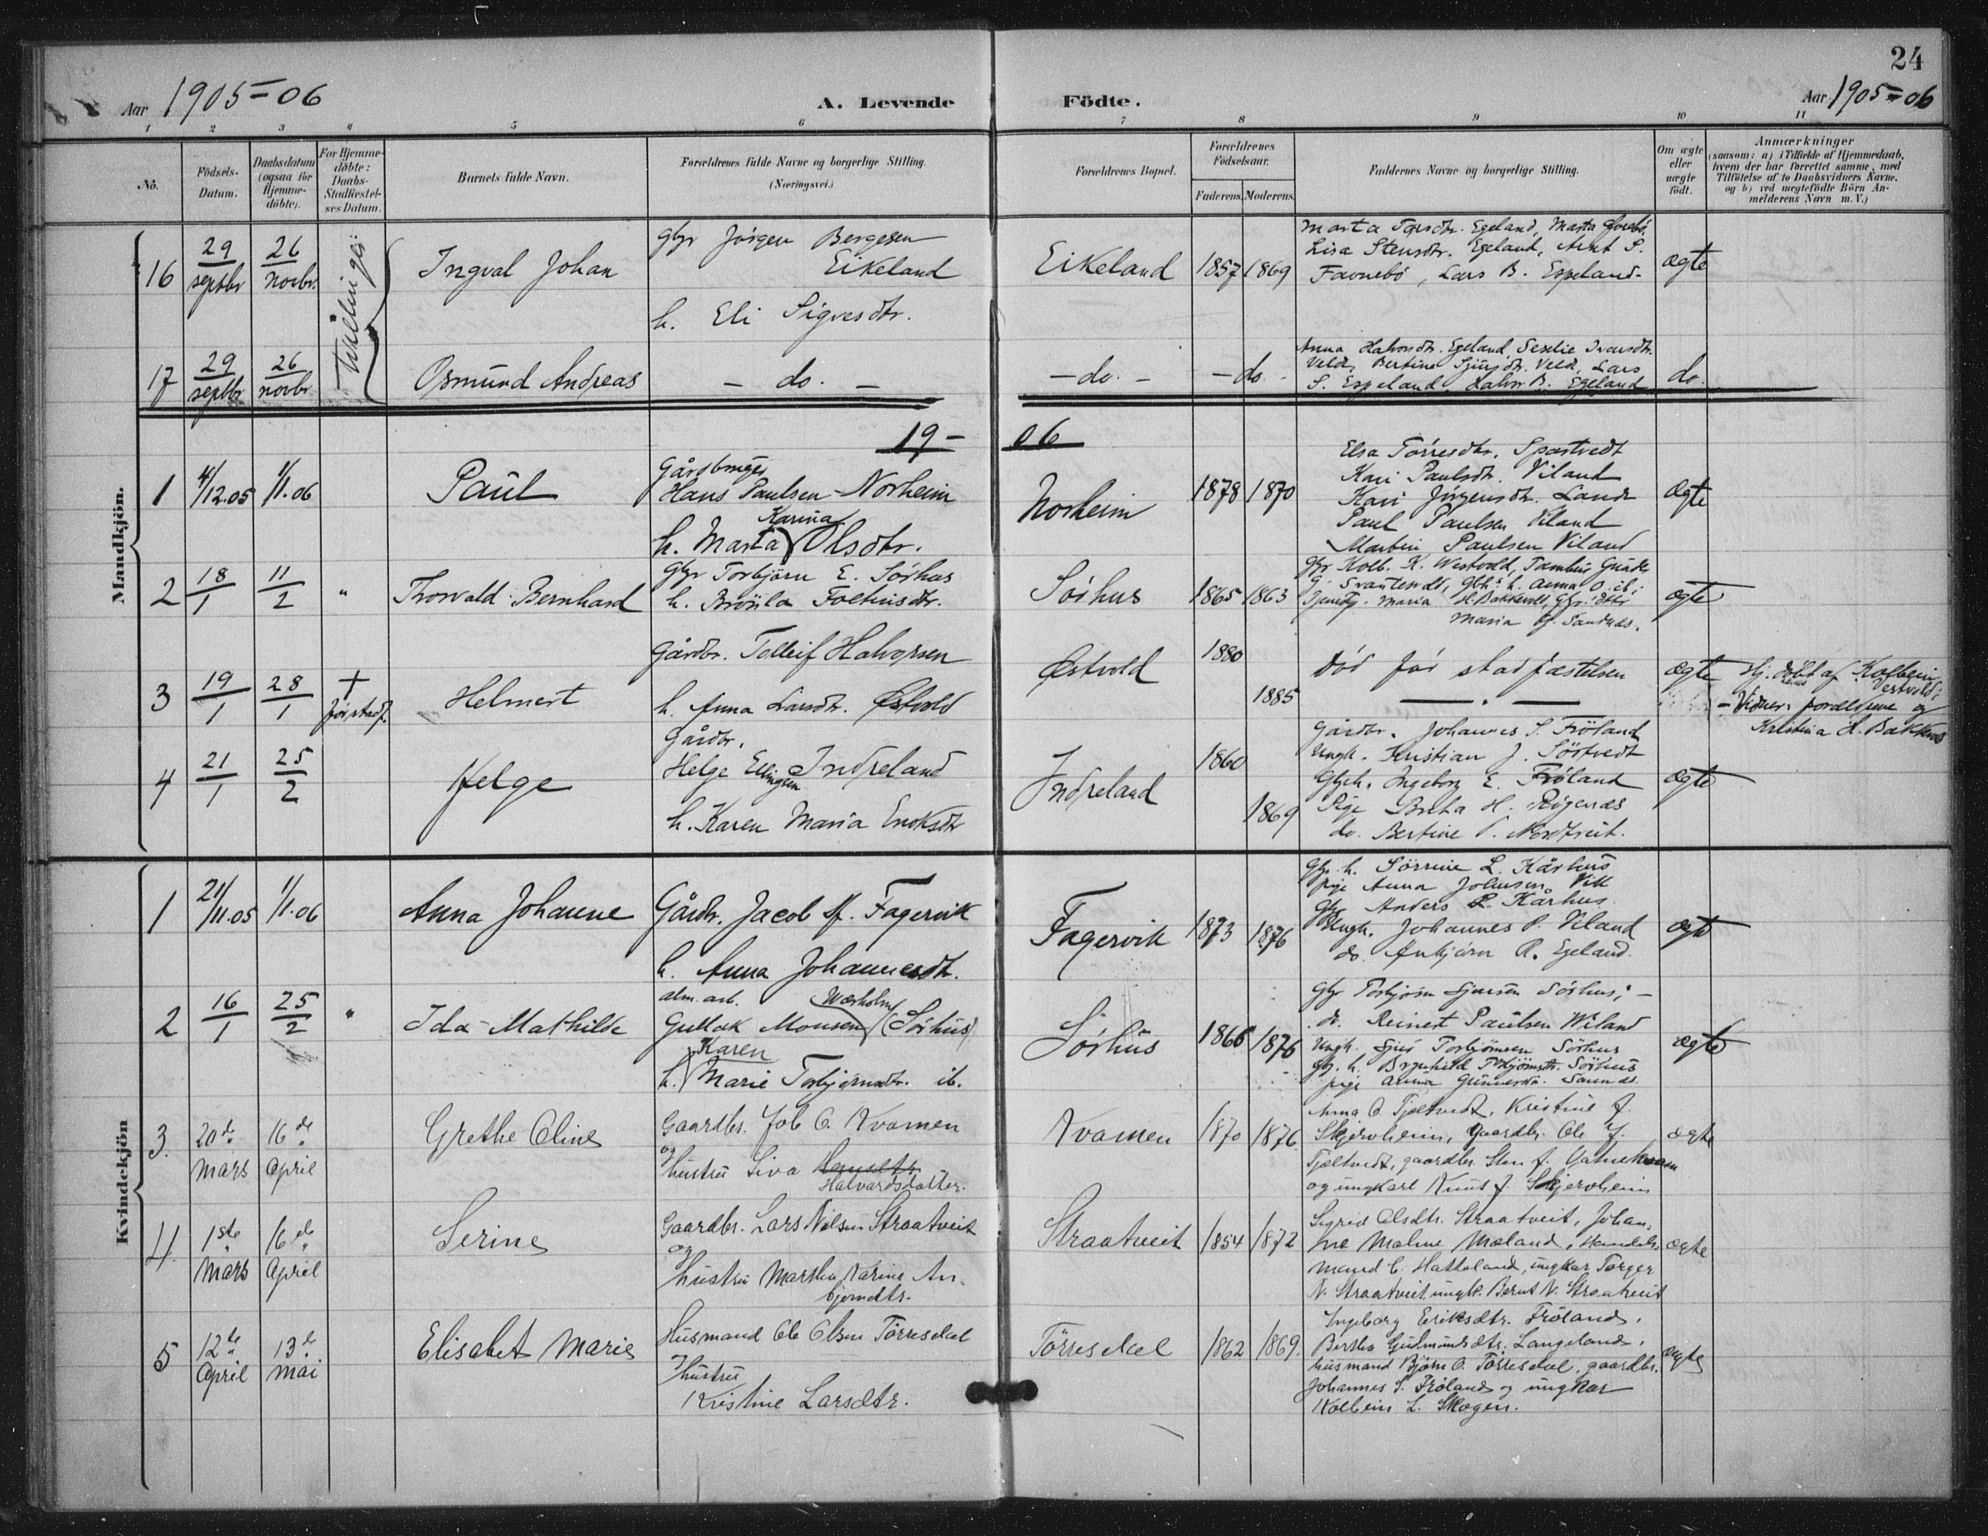 24
Aar 1905=06
A. Levende Födte.
Aar 1905=06
1 2 3 4 5 6 7 8 9 10 11
No.
Födsels-Datum.
Daabsdatum (ogsaa för Hjemme-döbte).
For Hjemme-döbte: Daabs-Stadfæstel-ses Datum.
Barnets fulde Navn.
Forældrenes fulde Navne og borgerlige Stilling.
(Næringsvei.)
Forældrenes Bopæl.
Forældrenes Födselsaar.
Faderens. Moderens.
Faddernes Navne og borgerlige Stilling.
Om ægte eller uægte födt.
Anmærkninger
(saasom: a) i Tilfælde af Hjemmedaab, hvem der har forrettet samme, med Tilföielse af to Daabsvidners Navne. og b) ved uegtefödte Börn An-melderens Navn m. V.)
Mandkjön.
16 29 septbr 26 novbr. Tvillinger Ingval Johan
gbr Jörgen Bergesen Eikeland
h. Eli Sigvesdtr.
Eikeland 1857 1869
Egeland, Marta
Lisa Stensdtr. Egeland, Arnt S.
Favnebö, Lars B. Espeland.
ægte
17 29 septbr 26 novbr Osmund Andreas
– do. – – do. – – do. –
Anna Halvorsdtr. Egeland,
Veld, Bertine Veld, Lars
S. Espeland, Halvor B. Egeland
do.
19 – 06
1 4/12.05 1/1.06 Paul
Gårdbruger
Hans Paulsen Norheim
h. Marta Karina Olsdtr.
Norheim 1878 1870
Elsa Törresdtr. Spartvedt
Kari Paulsdt. Viland
Kari Jörgensdt. Lande
Paul Paulsen Viland
Martin Paulsen Viland
Ægte
2 18/1 11/2 " Thorvald Bernhard
gbr Torbjörn E. Sörhus
h. Bröila
Sörhus 1865 1863
gbr Kolb. K. Westvold,
h. Anna O. ib;
Maria H. Bakkevold,
Maria
ægte
3 19/1 28/1 + för stadf. Helmert
Gårdbr. Tolleif Halvorsen
h. Anna Larsdtr. Østvold
Østvold 1880 1885
Död för stadfæstelsen
ægte
Hj. döbt af Kolbein Vestvold;
– Vidner: forældrene og
Kristina H. Bakkevold
4 21/1 25/2 Helge
Gårdbr.
Helge Ellingsen Indreland
h. Karen Maria Eriksdtr
Indreland 1860 1869
Gårdbr. Johannes S. Fröland
Ungk. Kristian J. Sörtvedt
Ingeborg E. Fröland
Pige Brita H. Rögenæs
do. Bertine
ægte
Kvindekjön
1 21/11.05 1/1.06 Anna Johanne
Gårdbr. Jacob M. Fagervik
h. Anna Johannesdtr.
Fagervik 1873 1876
gbr. h. Sörrine L. Kårhus
pige Anna Johnsen Vik
gbr Anders L. Kårhus.
Ungk. Johannes P. Viland
do. Anbjörn R. Egeland.
ægte
2 16/1 25/2 " Ida Mathilde
alm. arb.
Gullak Monsen Wærholm (Sörhus)
h. Karen Marie Torbjörnsdtr. ib.
Sörhus 1866 1876
gbr Torbjörn Sjursen Sörhus; –
do. Reinert Paulsen Wiland
Ungk. Sjur Torbjörnsen Sörhus
gbr. h. Brynhild Torbjörnsdtr. Sörhus
pige Anna Gunnersdtr.
ægte
3. 20de mars 16de april Grethe Oline
Gaardbr. Job O. Kvamen
og hustru Siva Halvardsdatter.
Kvamen 1870 1876
Anna O. Tjeltvedt, Kristine J.
Skjervheim, gaardbr. Ole J.
Tjeltvedt, gaardbr. Sten J.
og ungkarl Knut J. Skjervheim
ægte
4. 1ste mars 16de April Serine
Gaardbr. Lars Nilsen Straatveit
og hustru Martha Karine An-
bjørnsdtr.
Straatveit 1854 1872
Sigrid Olsdtr. Straatveit, Johan-
ne Malene Mæland, Handels-
mand C. Hatteland, ungkar Torger
N. Straatveit, ungk. Bernt N. Straatveit
ægte
5 12te April 13de mai Elisabet Marie
Husmand Ole Olsen Törresdal
og hustru
Kristine Larsdtr.
Törresdal 1862 1869.
Ingeborg Eriksdtr. Fröland,
Bertha Gudmundsdtr. Langeland,
husmand Björn O. Törresdal, gaardbr.
Johannes S. Fröland og ungkar
Kolbein L. Skogen.
ægte